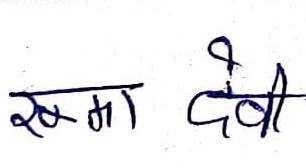 रूमा देवी